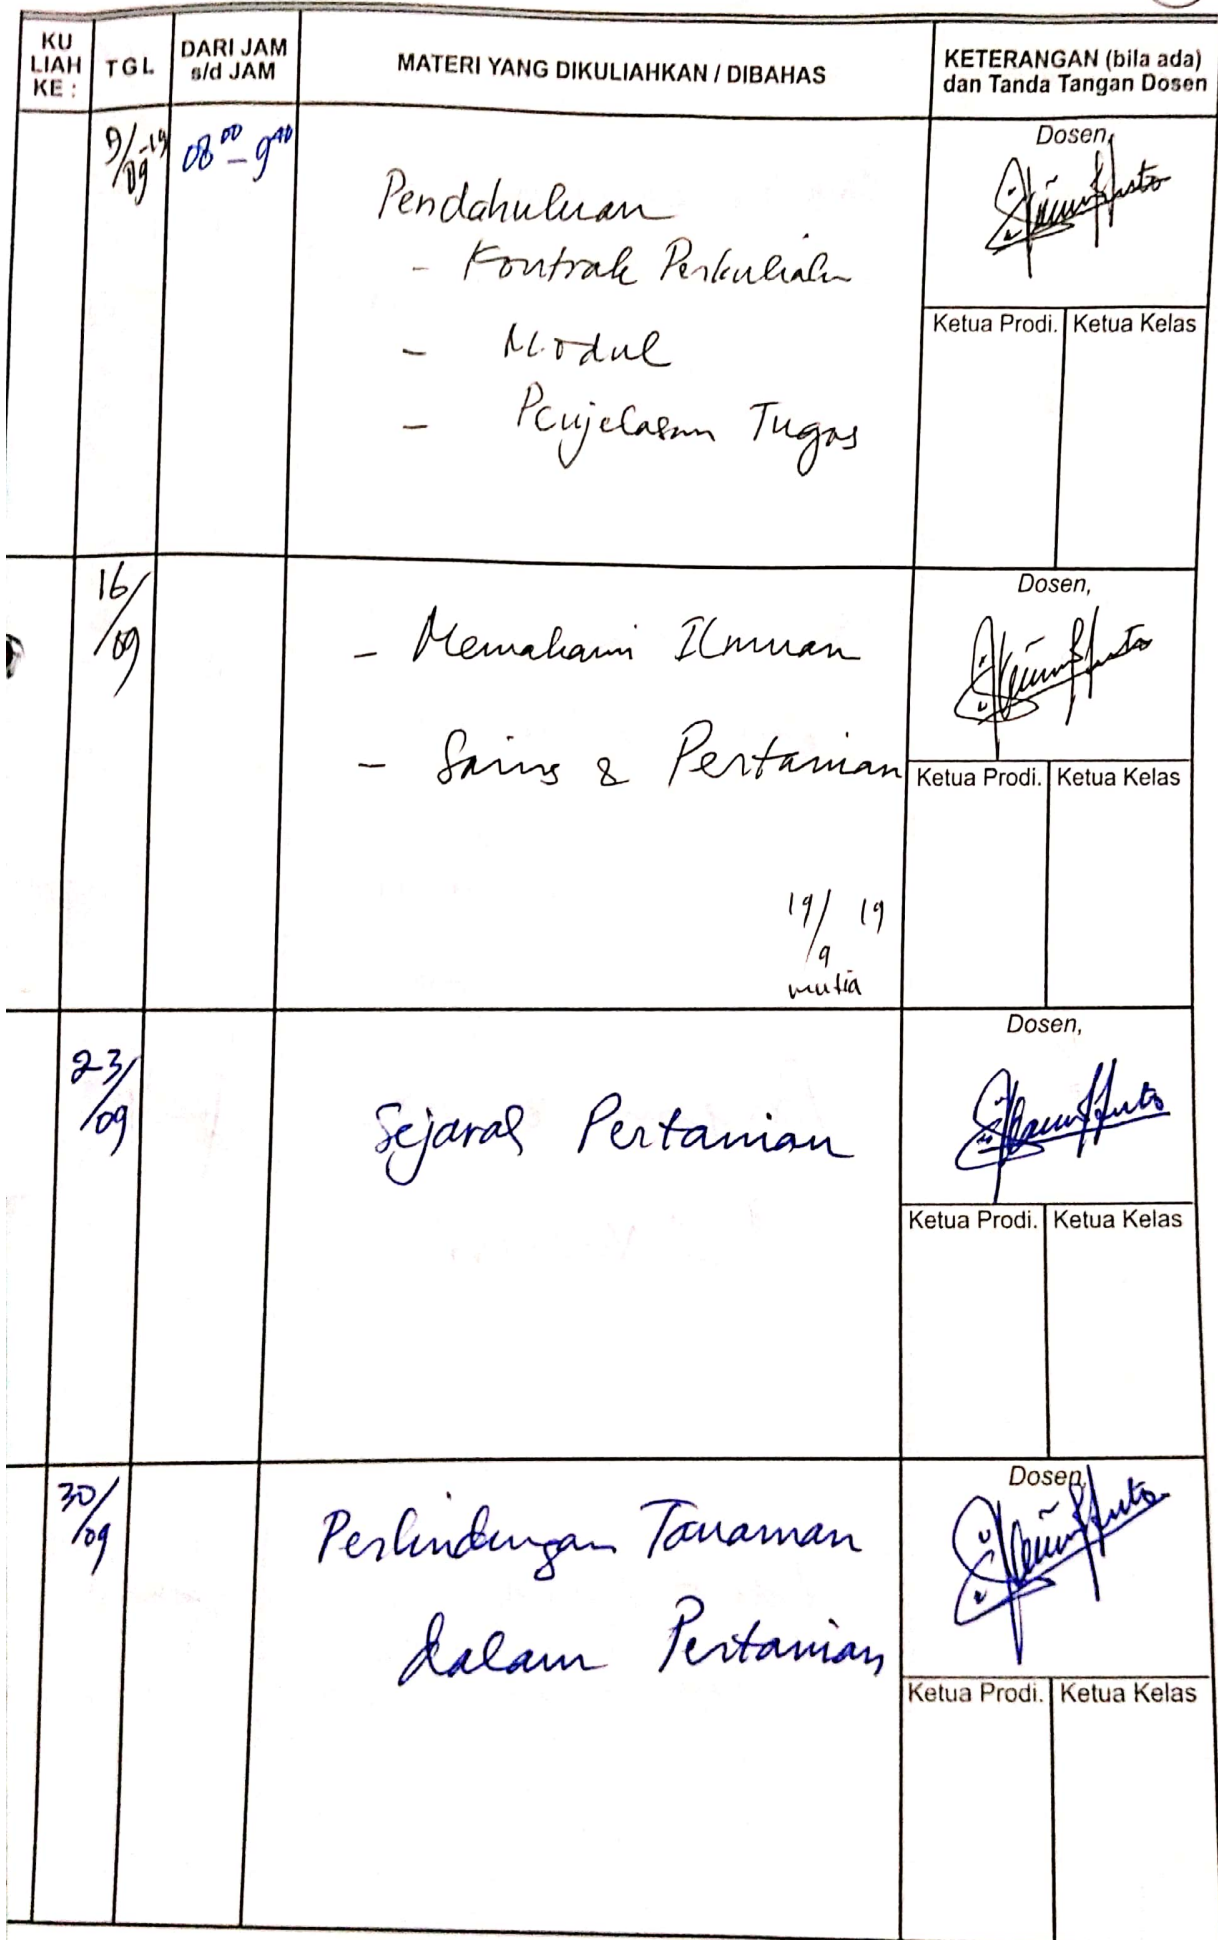 KU LIAH KE :
TGL
DARI JAM s/d JAM
MATERI YANG DIKULIAHKAN / DIBAHAS
KETERANGAN (bila ada) dan Tanda Tangan Dosen
9/09-19
08⁰⁰ - 9⁴⁰
Pendahuluan
- Kontrak Perkuliahan
- Modul
- Penjelasan Tugas
Dosen,
Ketua Prodi.
Ketua Kelas
16/09
- Memahami Ilmuan
- Sains & Pertanian
19/9 19
mutia
Dosen,
Ketua Prodi.
Ketua Kelas
23/09
Sejarah Pertanian
Dosen,
Ketua Prodi.
Ketua Kelas
30/09
Perlindungan Tanaman
dalam Pertanian
Dosen,
Ketua Prodi.
Ketua Kelas